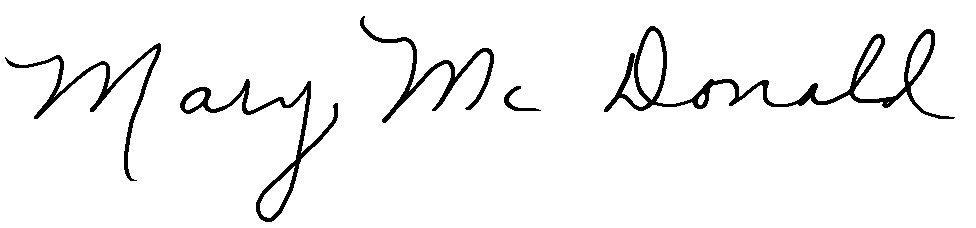 Mary Mc Donald